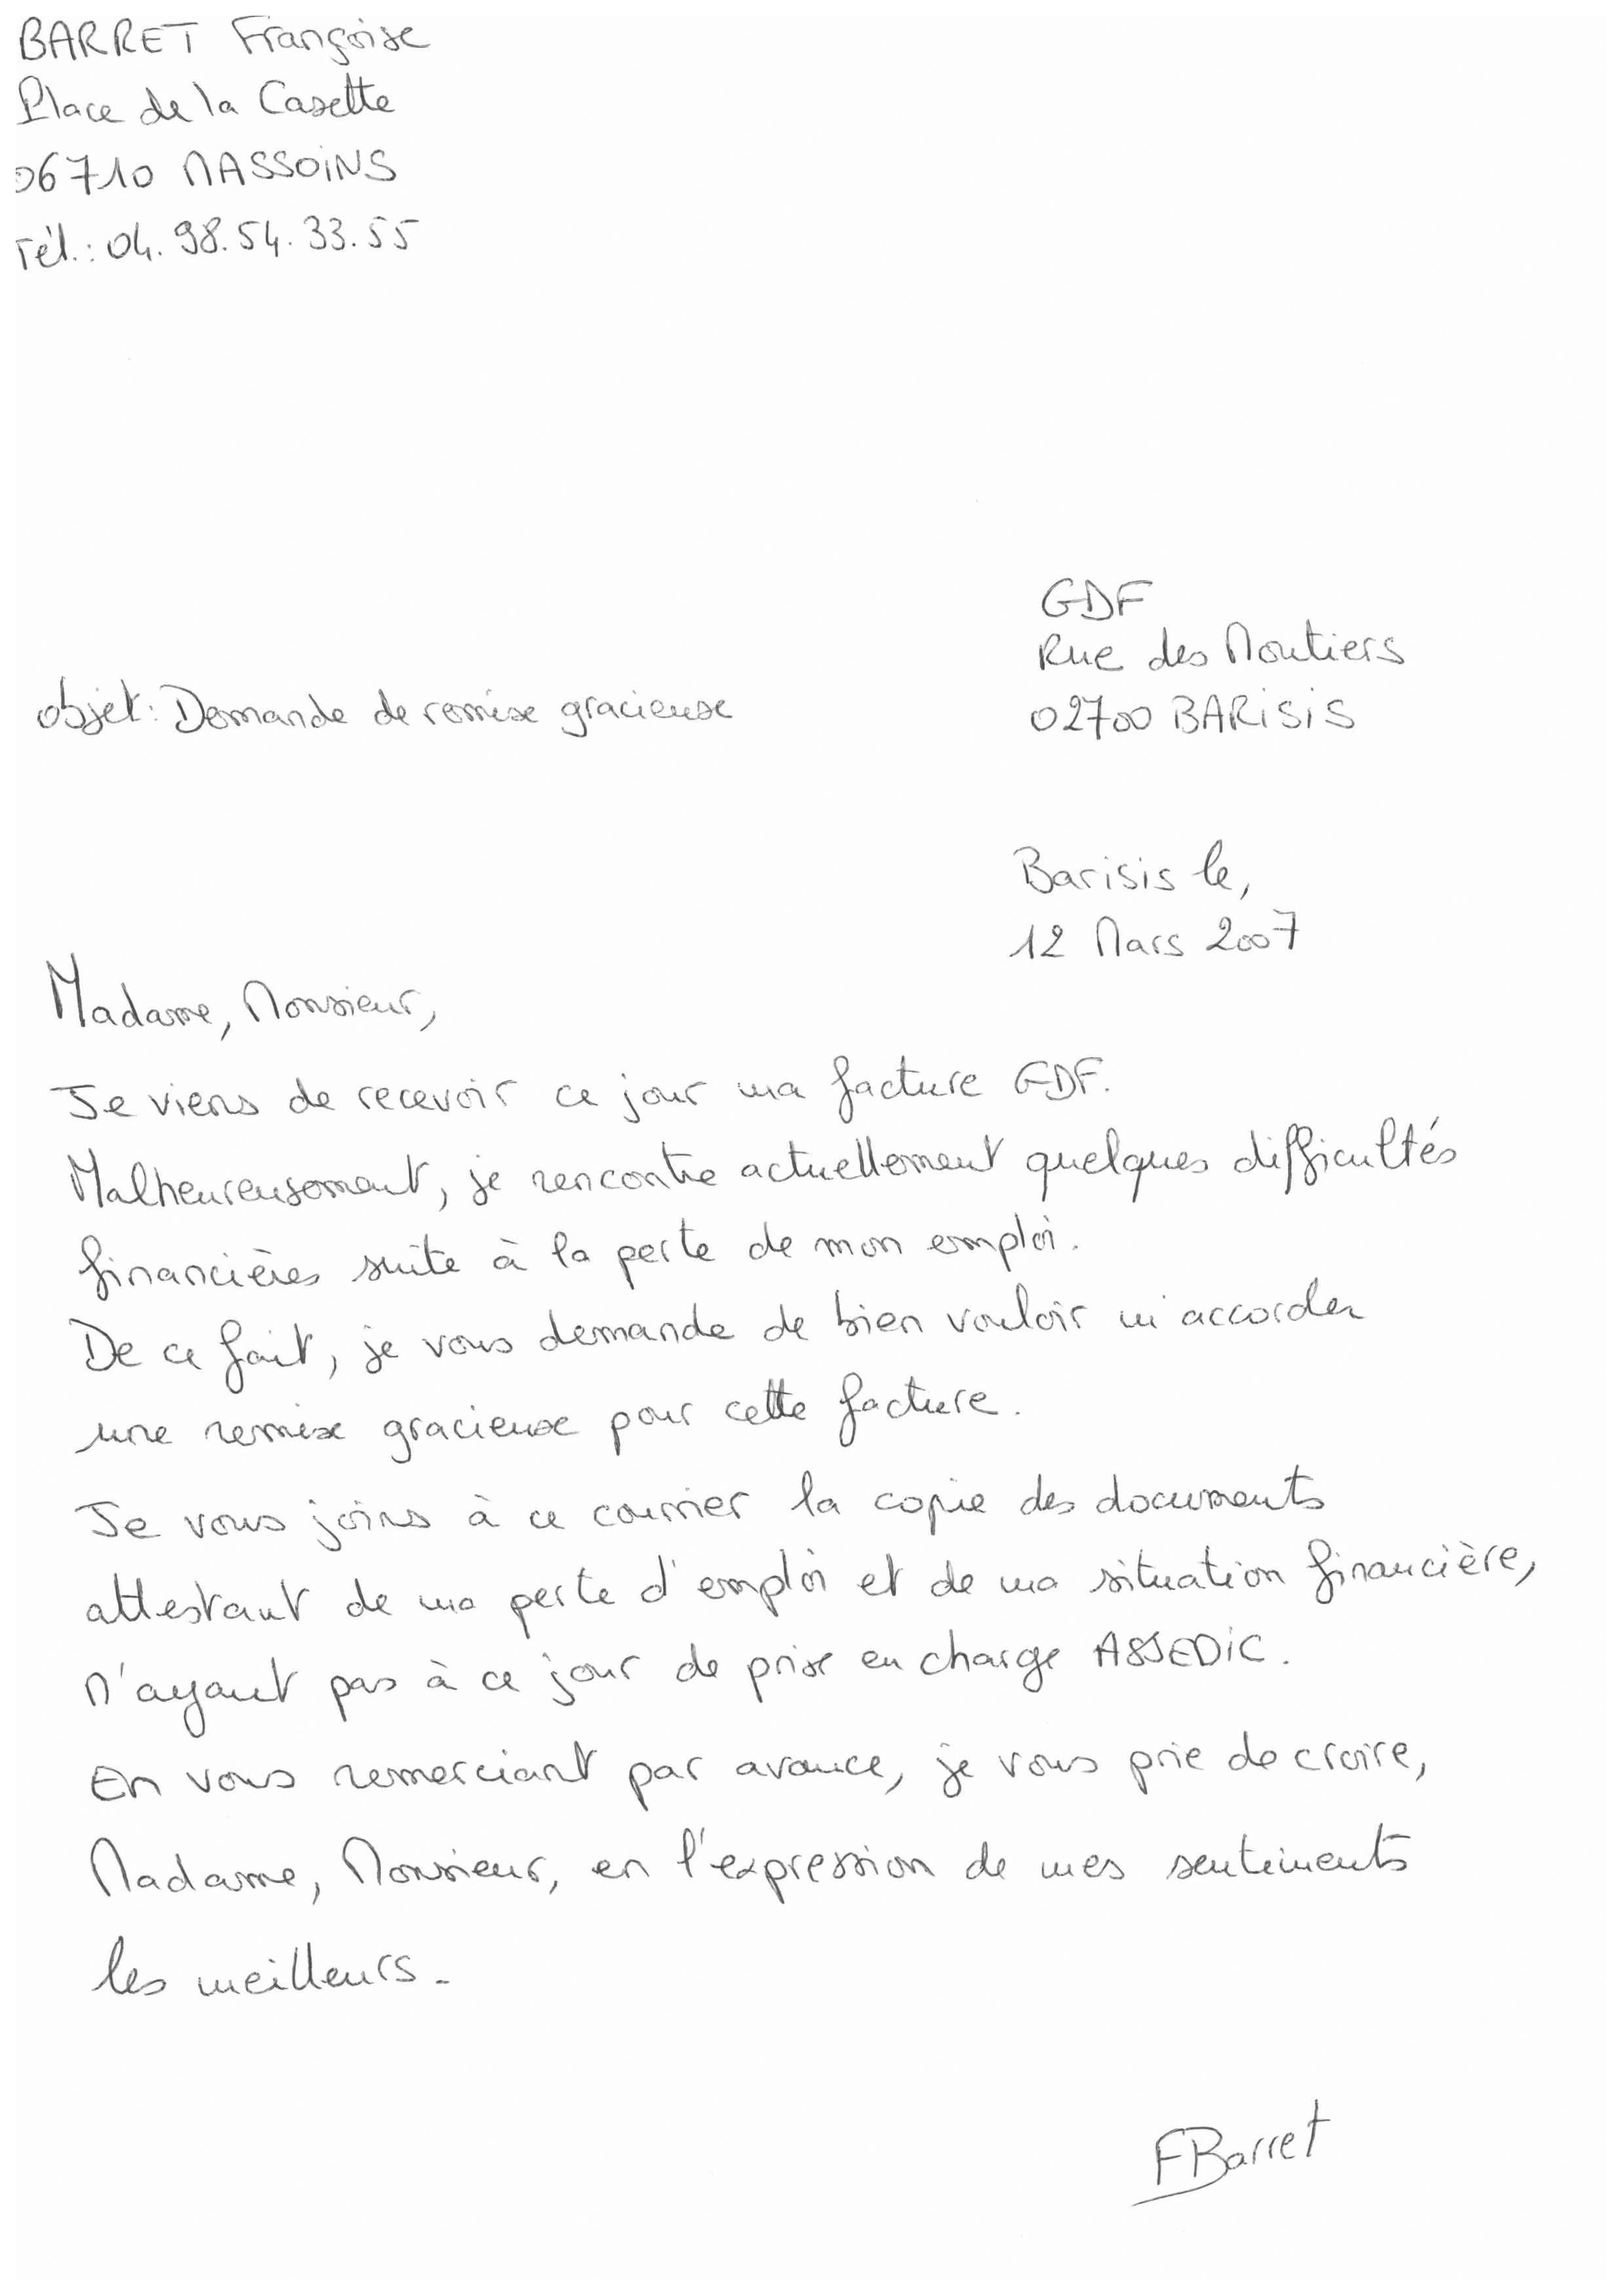 BARRET Françoise
Place de la Casette
06710 MASSOINS
Tél.: 04.98.54.33.55
GDF
Rue des Moutiers
02700 BARISIS
objet: Demande de remise gracieuse
Barisis le,
12 Mars 2007
Madame, Monsieur,
Je viens de recevoir ce jour ma facture GDF.
Malheureusement, je rencontre actuellement quelques difficultés
financières suite à la perte de mon emploi.
De ce fait, je vous demande de bien vouloir m'accorder
une remise gracieuse pour cette facture.
Je vous joins à ce courrier la copie des documents
attestant de ma perte d'emploi et de ma situation financière,
n'ayant pas à ce jour de prise en charge ASSEDIC.
En vous remerciant par avance, je vous prie de croire,
Madame, Monsieur, en l'expression de mes sentiments
les meilleurs.
FBarret